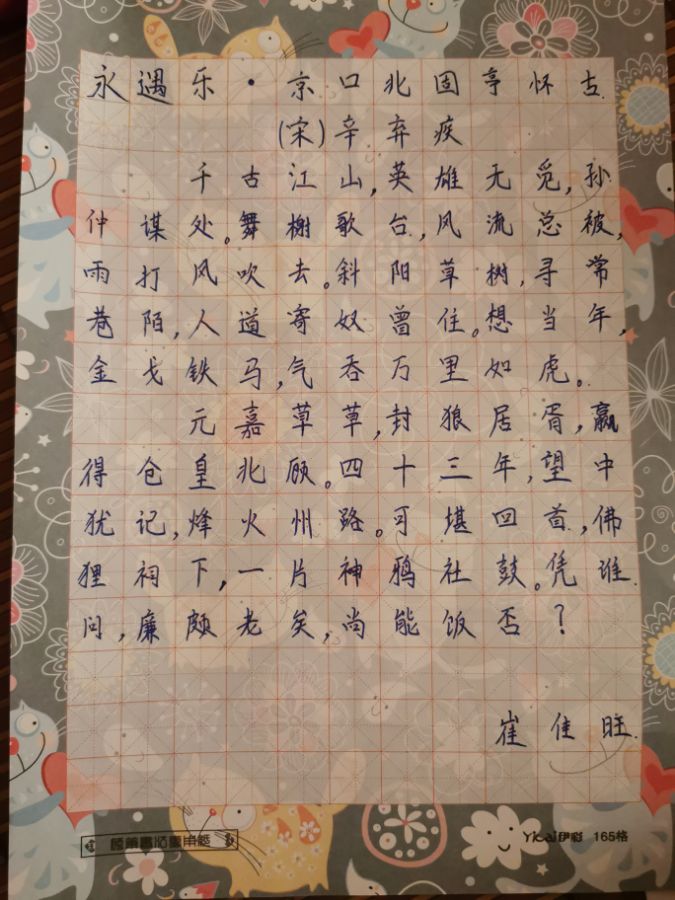 永遇乐·京口北固亭怀古
(宋)辛弃疾
千古江山,英雄无觅,孙
仲谋处。舞榭歌台,风流总被,
雨打风吹去。斜阳草树,寻常
巷陌,人道寄奴曾住。想当年,
金戈铁马,气吞万里如虎。
元嘉草草,封狼居胥,赢
得仓皇北顾。四十三年,望中
犹记,烽火州路。可堪回首,佛
狸祠下,一片神鸦社鼓。凭谁
问,廉颇老矣,尚能饭否?
崔佳旺
硬笔书法专用纸
Yicai伊彩 165格